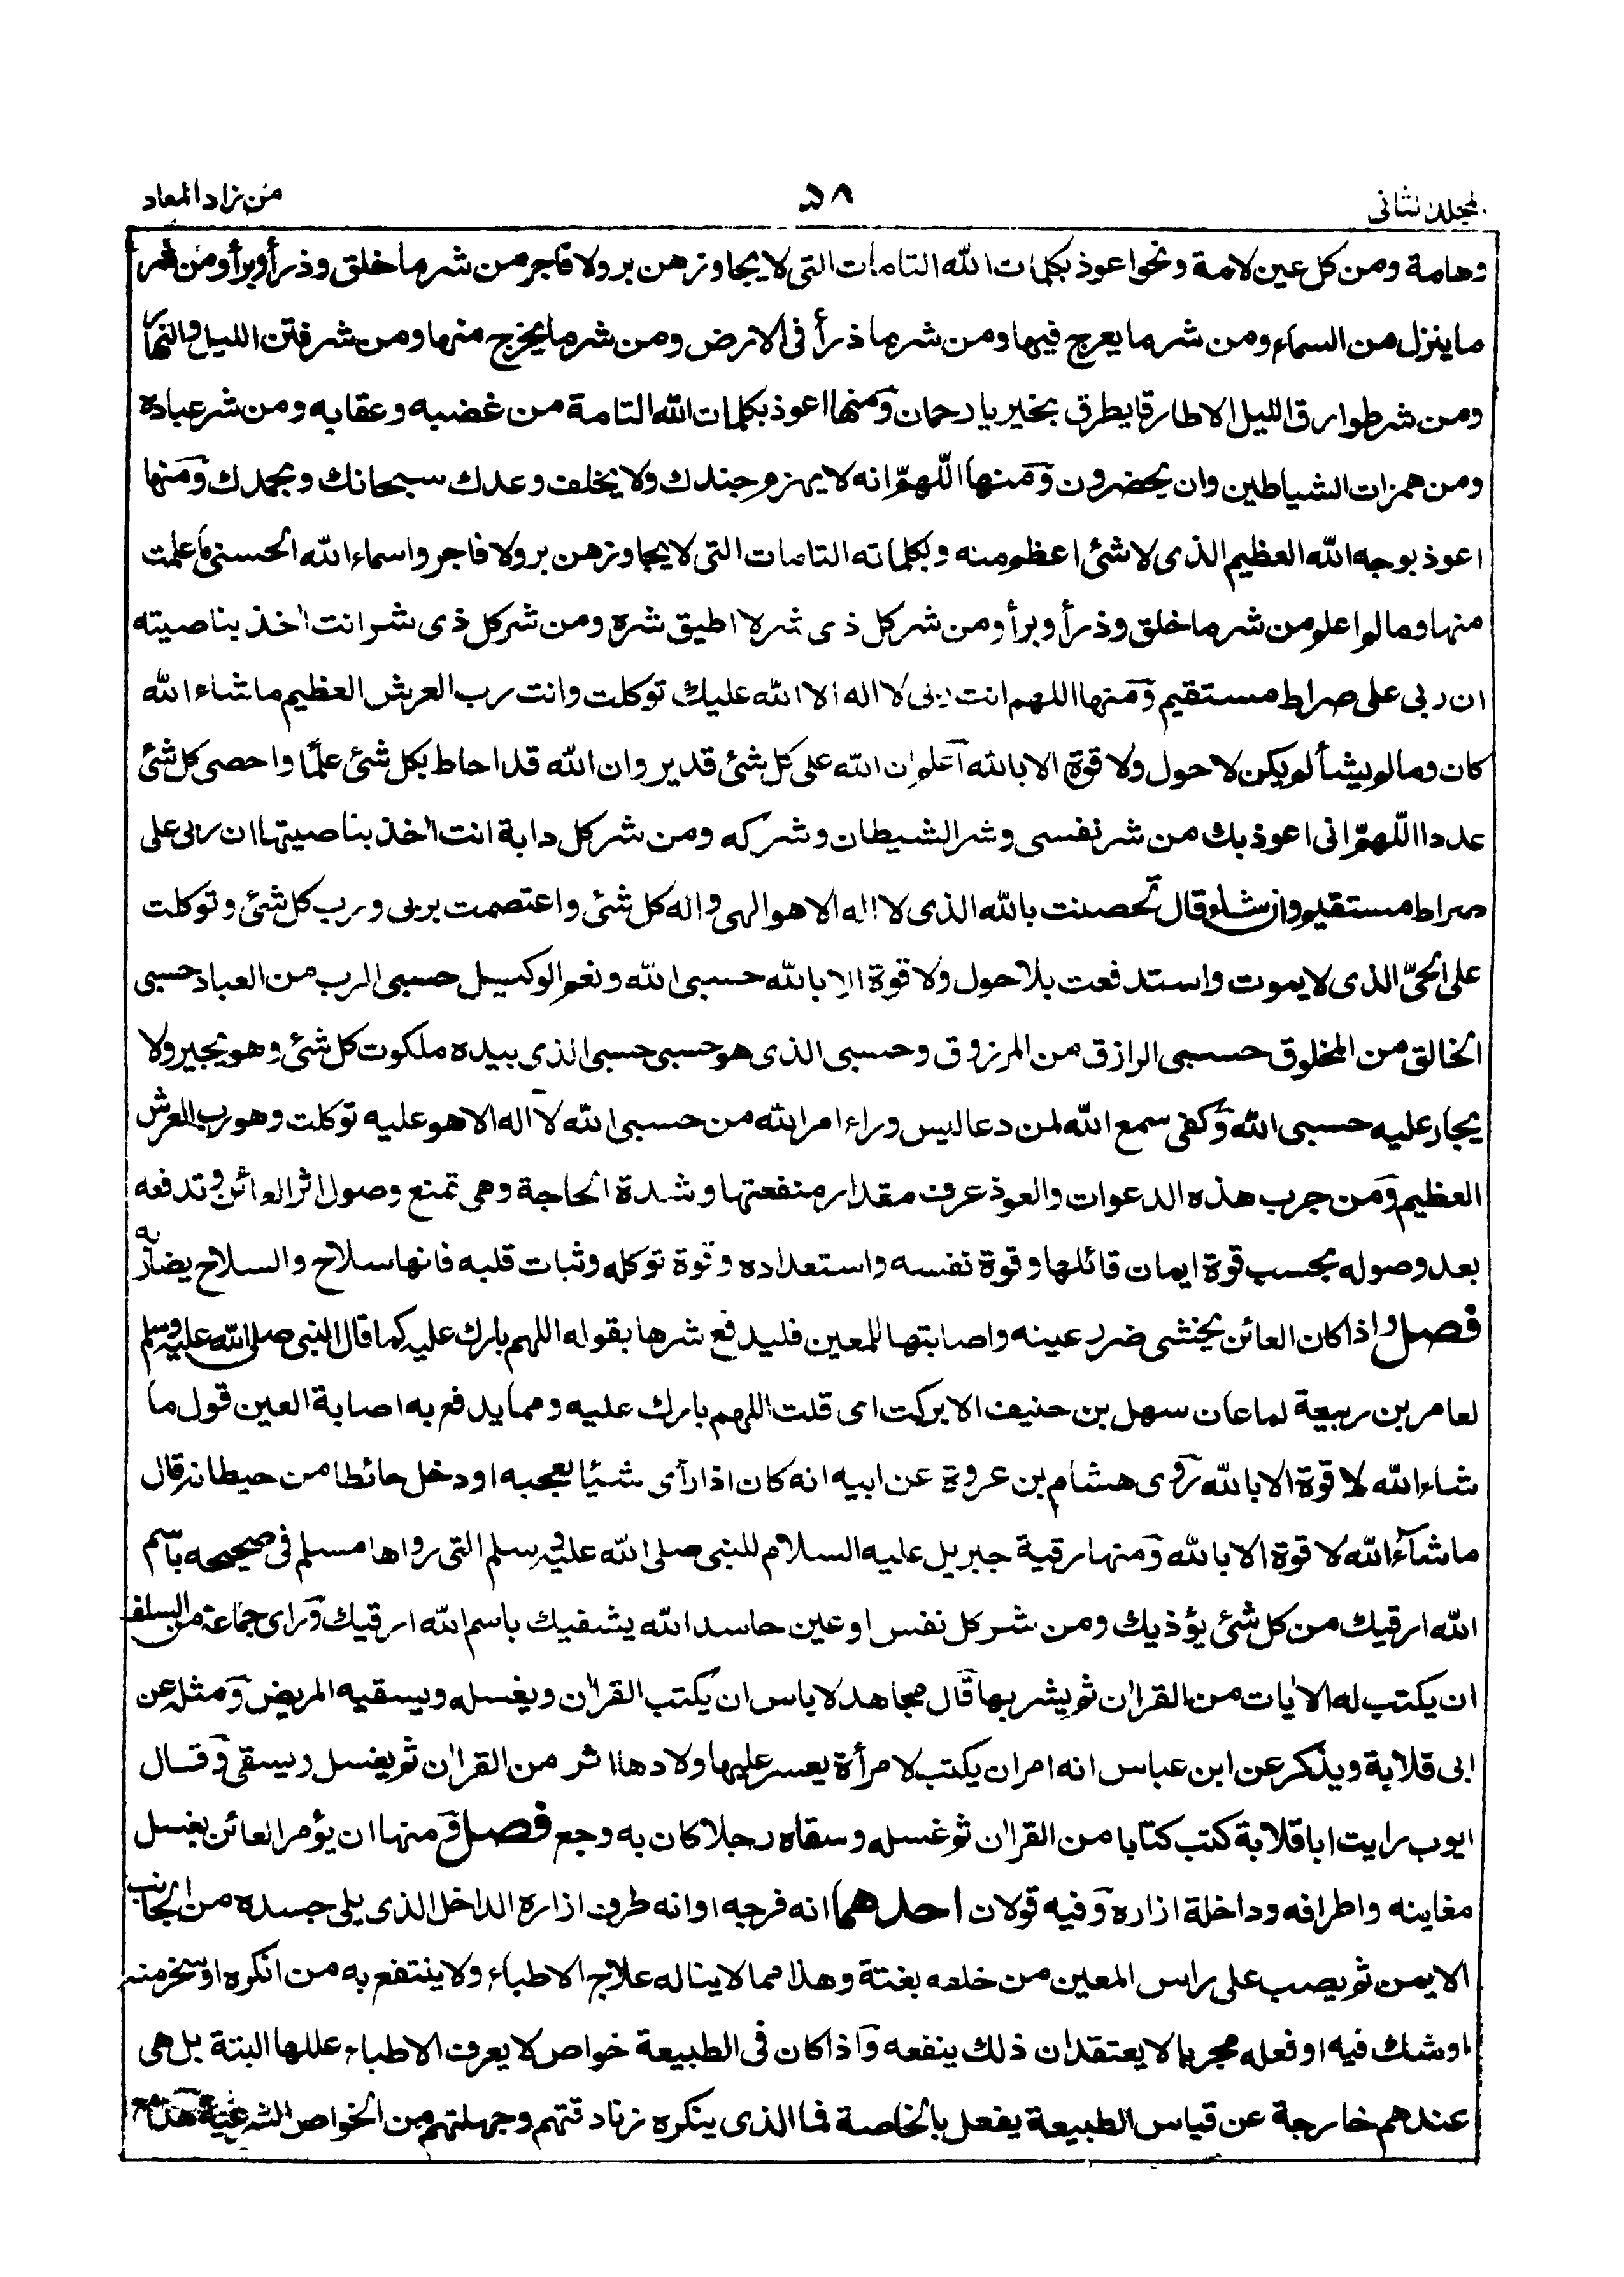 المجلد الثانى
٥٨
من زاد المعاد
وهامة ومن كل عين لامة ونحو اعوذ بكلمات الله التامات التى لا يجاوزهن بر ولا فاجر من شر ما خلق وذرأ وبرأ ومن شر
ما ينزل من السماء ومن شر ما يعرج فيها ومن شر ما ذرأ فى الارض ومن شر ما يخرج منها ومن شر فتن الليل والنهار
ومن شر طوارق الليل الا طارقا يطرق بخير يا رحمان ومنها اعوذ بكلمات الله التامة من غضبه وعقابه ومن شر عباده
ومن همزات الشياطين وان يحضرون ومنها اللّهمّ انه لا يهزم جندك ولا يخلف وعدك سبحانك وبحمدك ومنها
اعوذ بوجه الله العظيم الذى لا شئ اعظم منه وبكلماته التامات التى لا يجاوزهن بر ولا فاجر واسماء الله الحسنى ما علمت
منها وما لم اعلم من شر ما خلق وذرأ وبرأ ومن شر كل ذى شر لا اطيق شره ومن شر كل ذى شر انت اٰخذ بناصيته
ان ربى على صراط مستقيم ومنها اللهم انت ربى لا اله الا الله عليك توكلت وانت رب العرش العظيم ما شاء الله
كان وما لم يشأ لم يكن لا حول ولا قوة الا بالله اعلم ان الله على كل شئ قدير وان الله قد احاط بكل شئ علمًا واحصى كل شئ
عددا اللّهمّ انى اعوذ بك من شر نفسى وشر الشيطان وشركه ومن شر كل دابة انت اٰخذ بناصيتها ان ربى على
صراط مستقيم وان شاء قال تحصنت بالله الذى لا اله الا هو الهى واله كل شئ واعتصمت بربى ورب كل شئ وتوكلت
على الحىّ الذى لا يموت واستدفعت بلا حول ولا قوة الا بالله حسبى الله ونعم الوكيل حسبى الرب من العباد حسبى
الخالق من المخلوق حسبى الرازق من المرزوق وحسبى الذى هو حسبى حسبى الذى بيده ملكوت كل شئ وهو يجير ولا
يجار عليه حسبى الله وكفى سمع الله لمن دعا ليس وراء امر الله من حسبى الله لا اله الا هو عليه توكلت وهو رب العرش
العظيم ومن جرب هذه الدعوات والعوذ عرف مقدار منفعتها وشدة الحاجة وهى تمنع وصول اثر العائن وتدفعه
بعد وصوله بحسب قوة ايمان قائلها وقوة نفسه واستعداده وقوة توكله وثبات قلبه فانها سلاح والسلاح بضاربه
فصل واذا كان العائن يخشى ضرر عينه واصابتها للمعين فليدفع شرها بقوله اللهم بارك عليه كما قال النبى صلى الله عليه وسلم
لعامر بن ربيعة لما عان سهل بن حنيف الا بركت اى قلت اللهم بارك عليه ومما يدفع به اصابة العين قول ما
شاء الله لا قوة الا بالله روى هشام بن عروة عن ابيه انه كان اذا رآى شيئا يعجبه او دخل حائطا من حيطانه قال
ما شآء الله لا قوة الا بالله ومنها رقية جبريل عليه السلام للنبى صلى الله عليه وسلم التى رواها مسلم فى صحيحه باسم
الله ارقيك من كل شئ يؤذيك ومن شر كل نفس او عين حاسد الله يشفيك باسم الله ارقيك وراى جماعة من السلف
ان يكتب له الاٰيات من القراٰن ثم يشربها قال مجاهد لا باس ان يكتب القراٰن ويغسله ويسقيه المريض ومثله عن
ابى قلابة ويذكر عن ابن عباس انه امر ان يكتب لامرأة يعسر عليها ولادها اثر من القراٰن ثم يغسل ويسقى وقال
ايوب رايت ابا قلابة كتب كتابا من القراٰن ثم غسله وسقاه رجلا كان به وجع فصل ومنها ان يؤمر العائن بغسل
مغابنه واطرافه وداخلة ازاره وفيه قولان احدهما انه فرجه او انه طرف ازاره الداخل الذى يلى جسده من الجانب
الايمن ثم يصب على راس المعين من خلفه بغتة وهذا مما لا يناله علاج الاطباء ولا ينتفع به من انكره او سخر منه
او شك فيه او فعله مجربا لا يعتقد ان ذلك ينفعه واذا كان فى الطبيعة خواص لا يعرف الاطباء عللها البتة بل هى
عندهم خارجة عن قياس الطبيعة يفعل بالخاصة فما الذى ينكره زنادقتهم وجهلتهم من الخواص الشرعية هذا مع